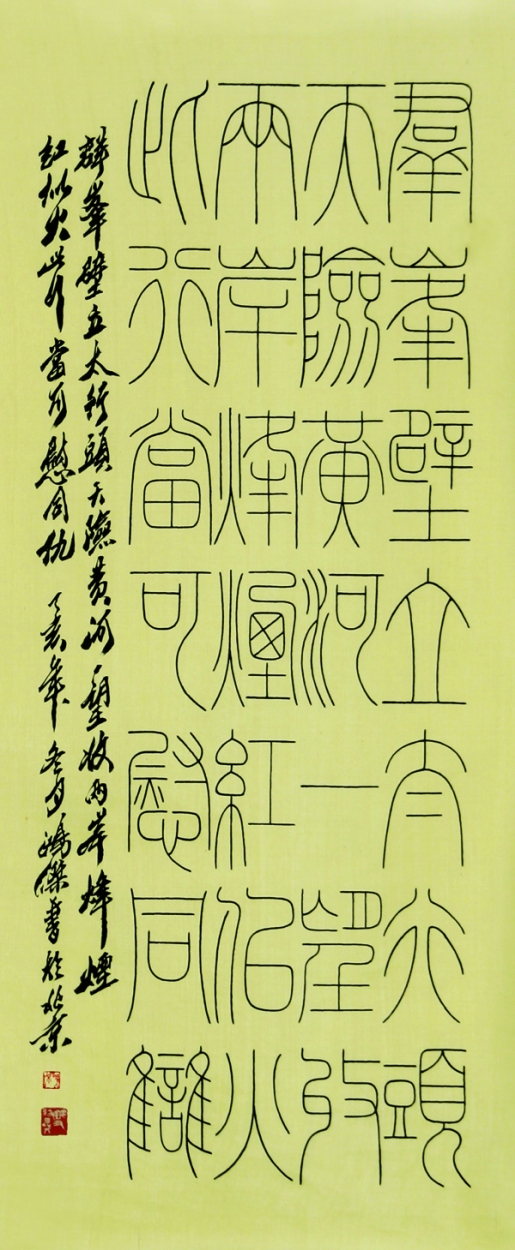 羣峯壁立太行頭
天險黃河一望收
兩岸烽煙紅似火
此行當可慰同讎
群峯壁立太行頭天險黃河一望收兩岸烽煙
紅似火此行當可慰同仇 丁亥年冬月鴻傑書於北京